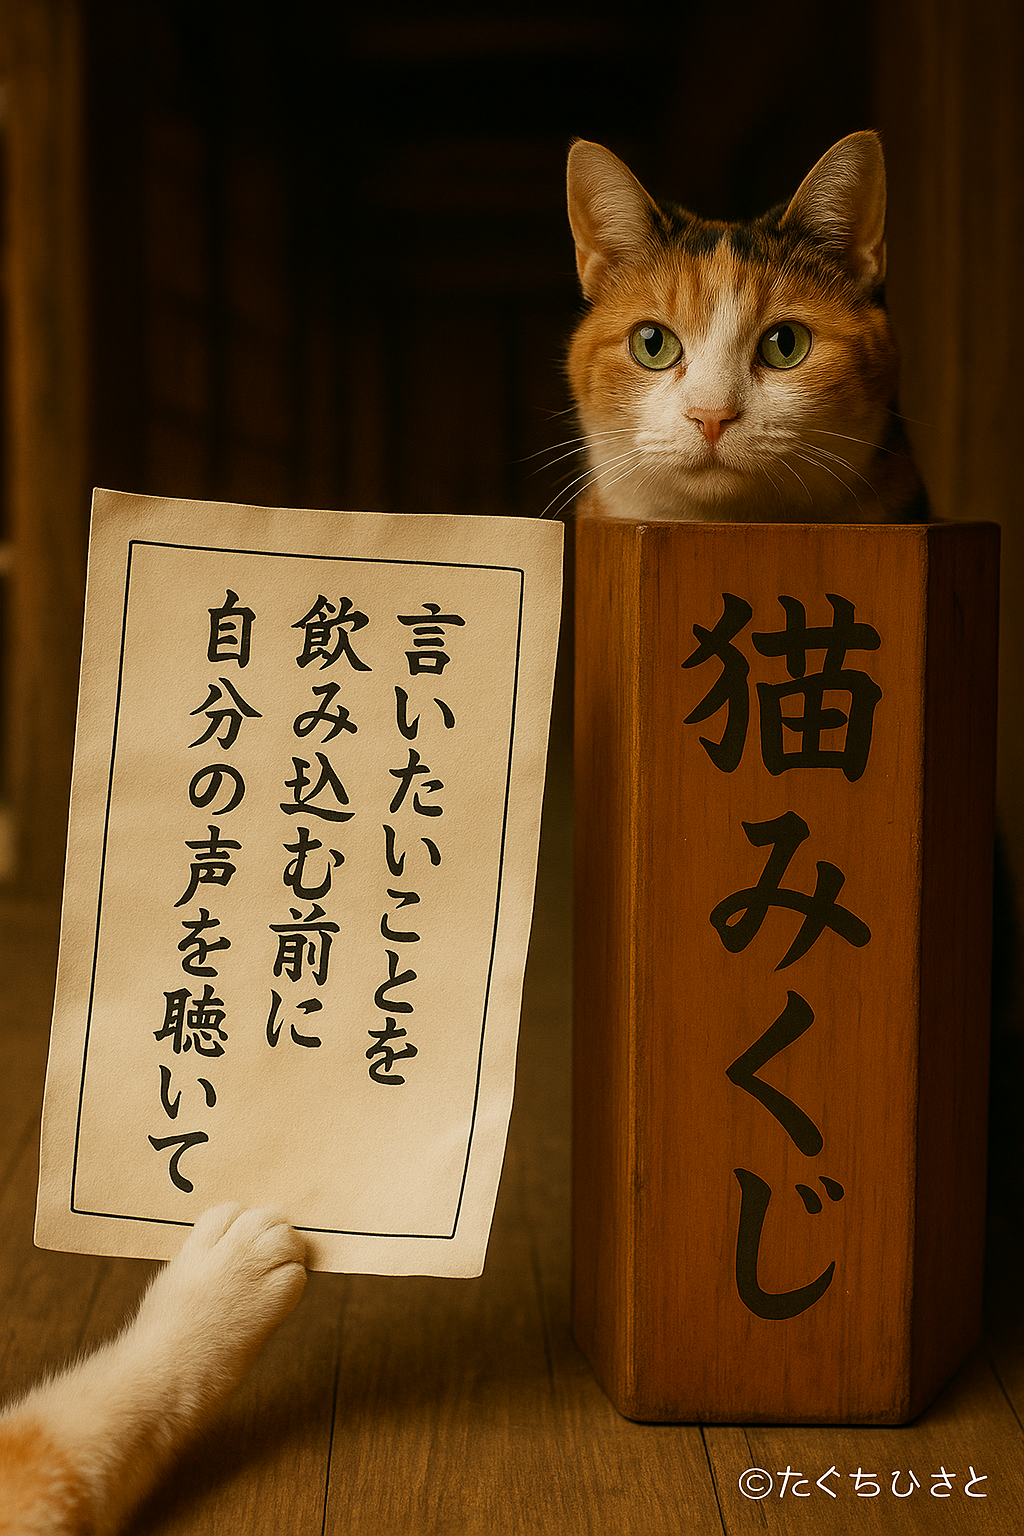 言いたいことを
飲み込む前に
自分の声を聴いて
猫みくじ
©たぐちひさと